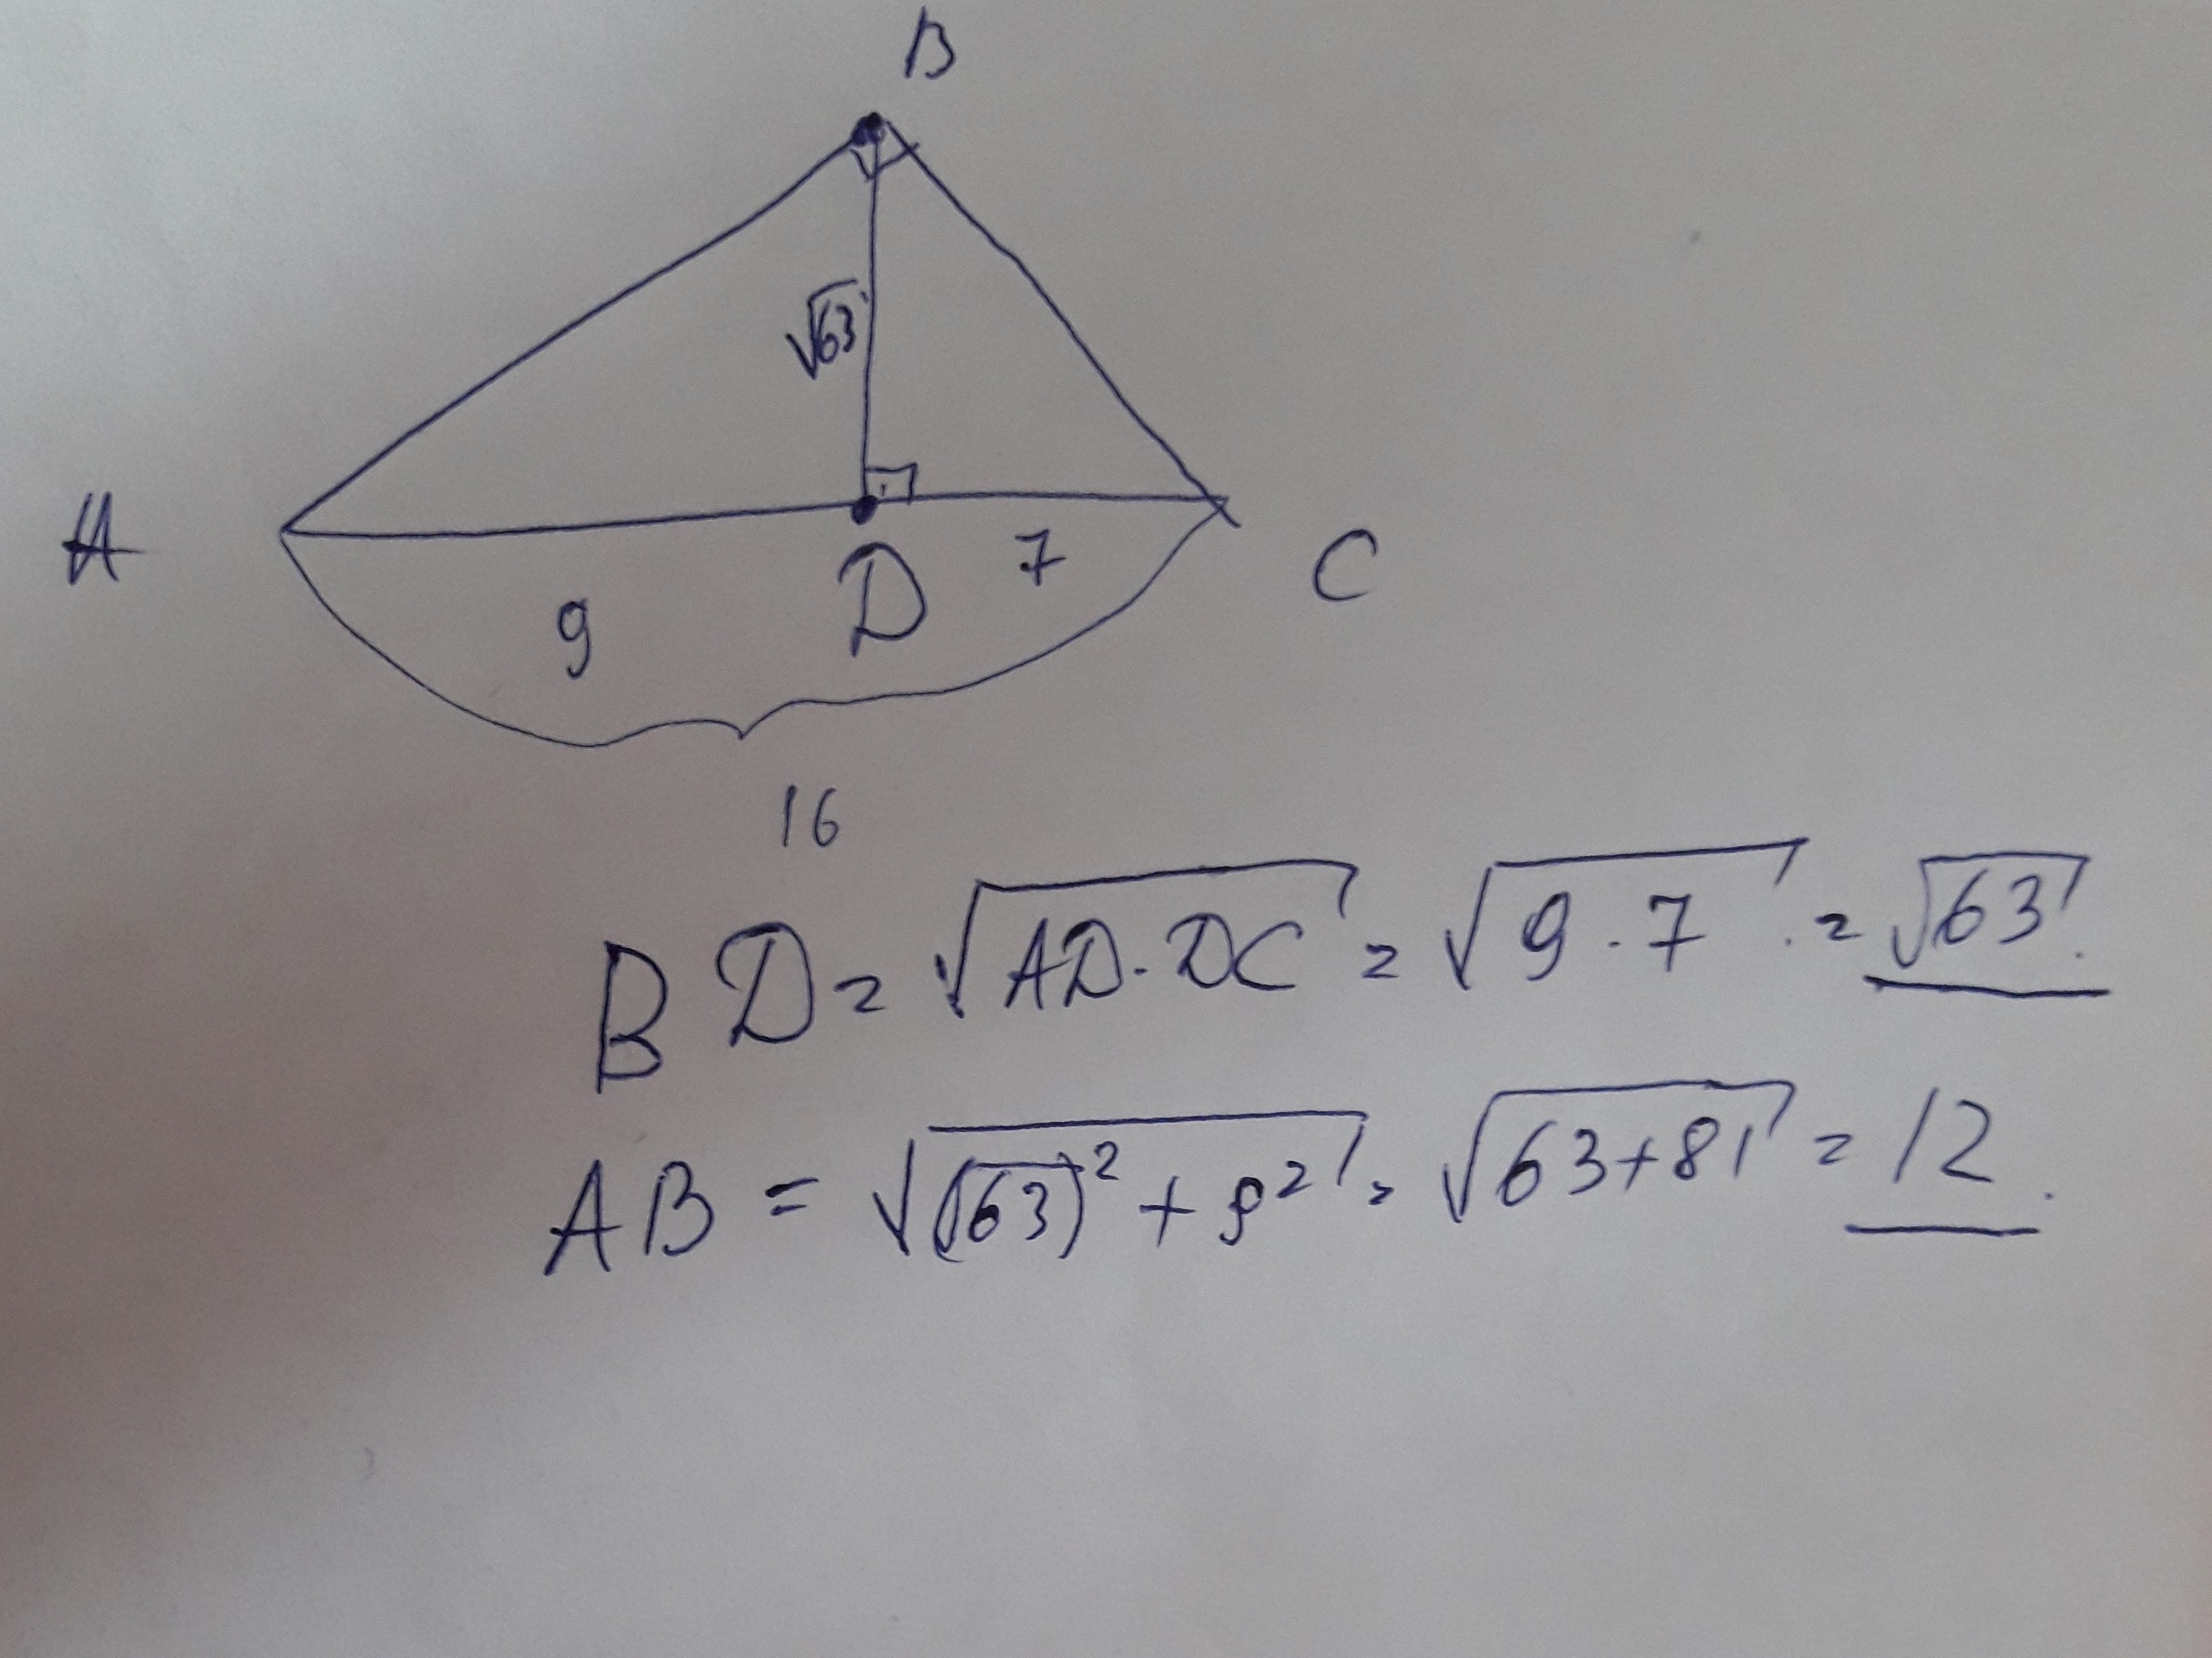 B
√63
A
C
D
7
9
16
BD = √AD·DC = √9·7 = √63.
AB = √(√63)² + 9² = √63+81 = 12.